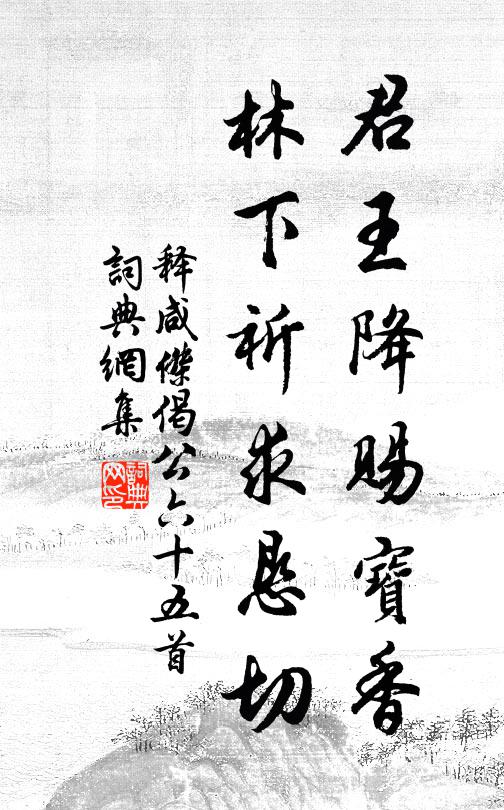 君王降賜寶香
林下祈求恳切
释咸傑偈公六十五首
詞典網集
詞典网印